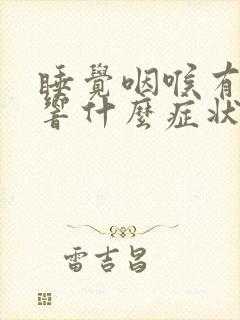 睡覺咽喉有
響什麼症狀
雷吉昌